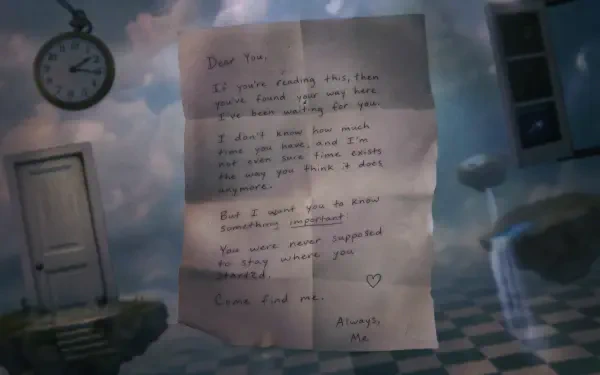 Dear You,
If you're reading this, then
you've found your way here
I've been waiting for you.
I don't know how much
time you have, and I'm
not even sure time exists
the way you think it does
anymore.
But I want you to know
something important
You were never supposed
to stay where you
started.
Come find me.
Always,
Me